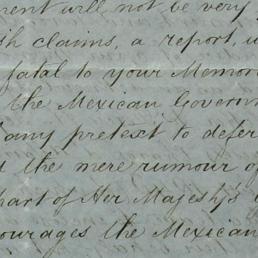 ment will not be very
sh claims, a report, u
fatal to your Memor
the Mexican Governm
any pretext to defer
d the mere rumour of
part of Her Majesty's
courages the Mexican